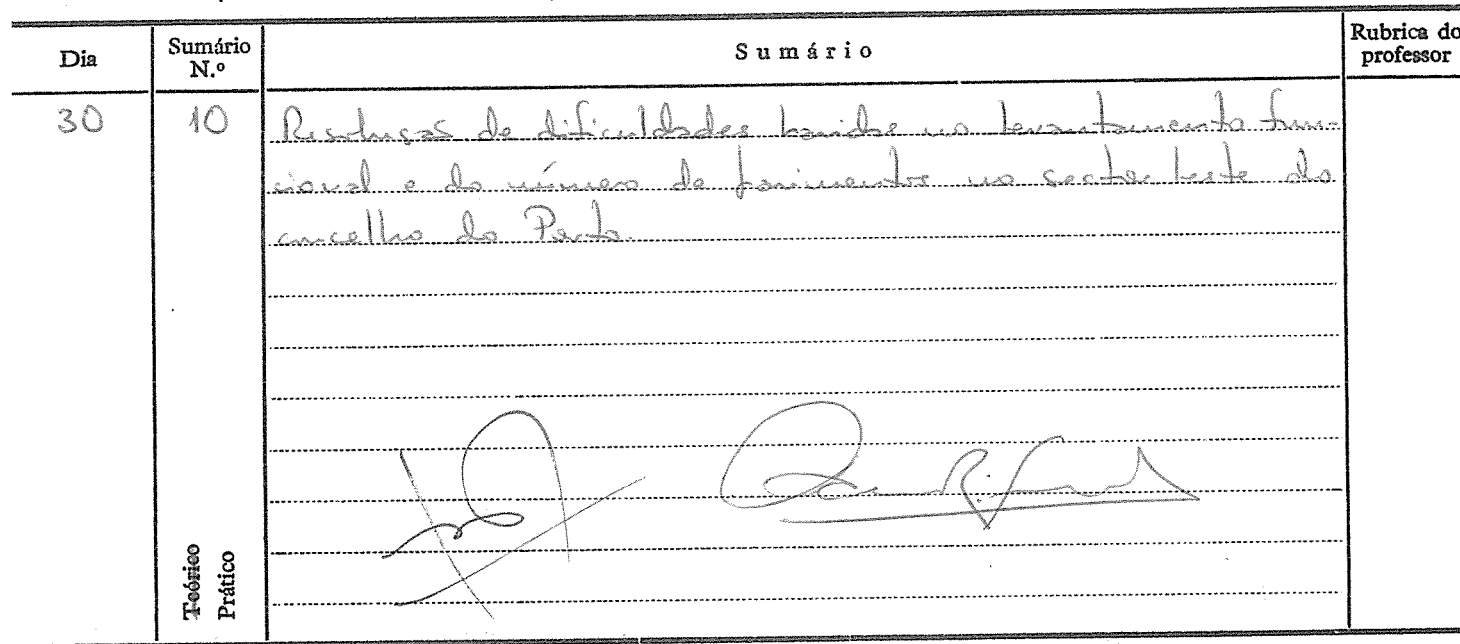 Dia
Sumário N.º
Sumário
Rubrica do professor
30
10
Resoluções de dificuldades havidas no levantamento fun-
cional e do número de pavimentos no sector leste do
concelho do Porto.
Teórico
Prático